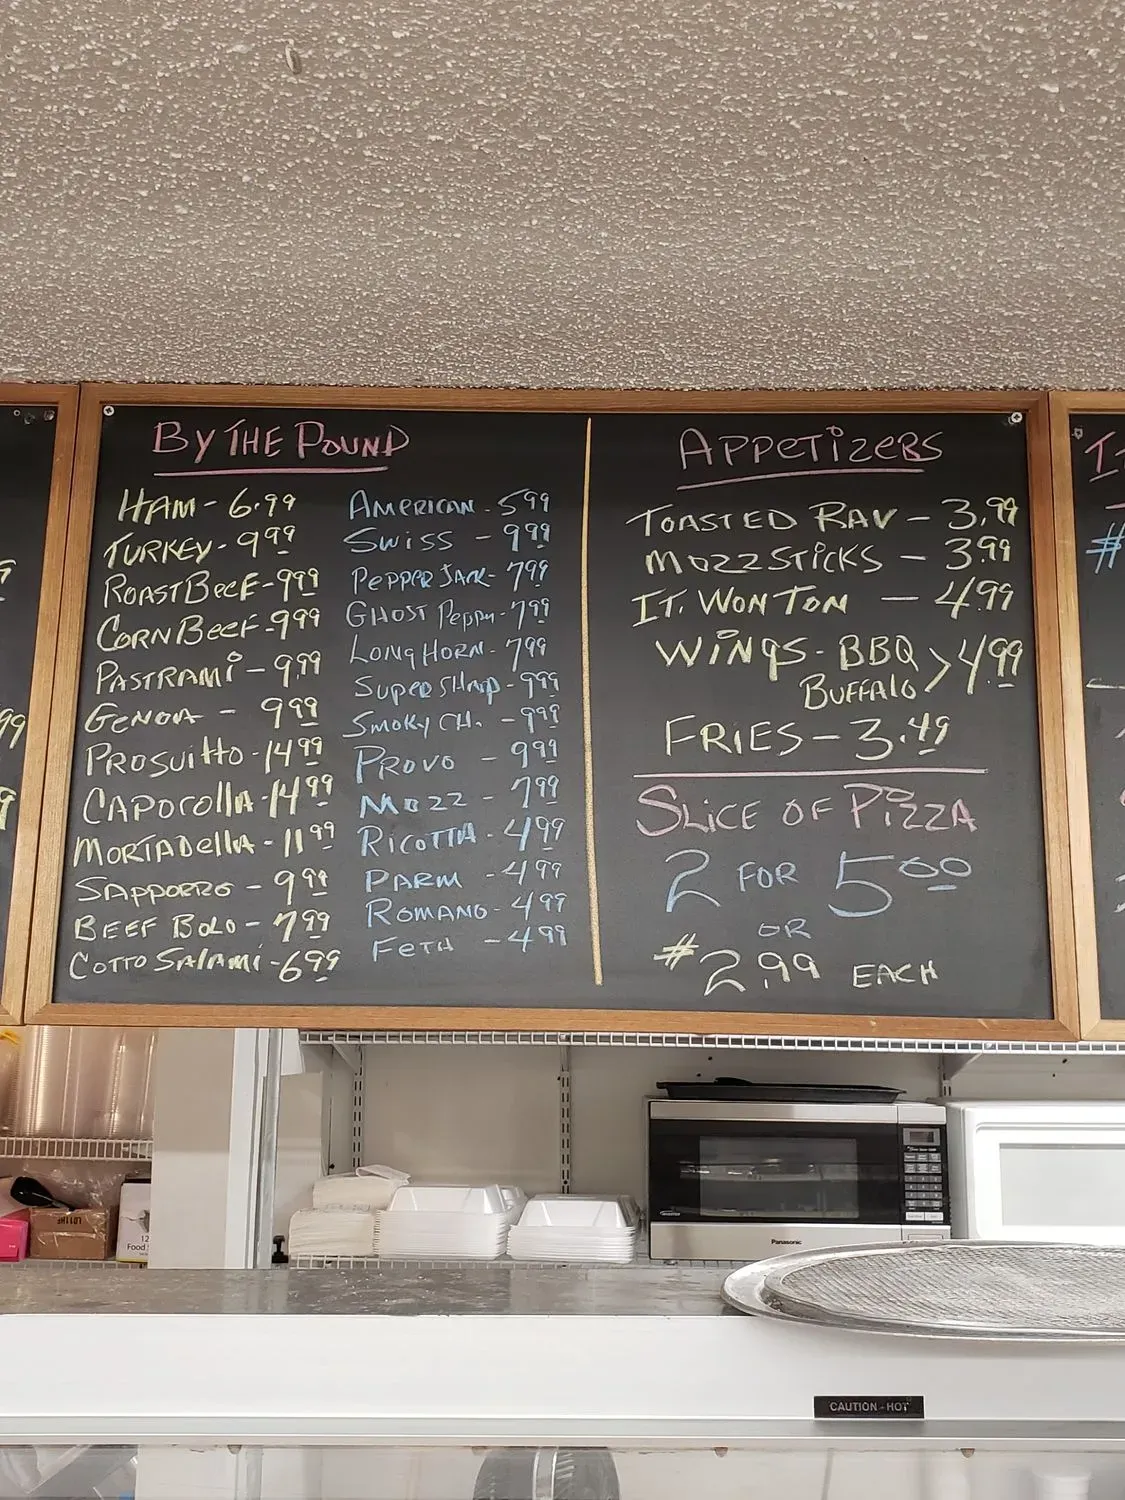 BY THE POUND
HAM - 6.99
TURKEY - 9 99
ROAST BEEF - 9 99
CORN BEEF - 9 99
PASTRAMI - 9.99
GENOA - 9 99
PROSUITTO - 14 99
CAPOCOLLA - 14 99
MORTADELLA - 11 99
SAPPORRO - 9 99
BEEF BOLO - 7 99
COTTO SALAMI - 6 99
AMERICAN - 5 99
SWISS - 9 99
PEPPER JACK - 7 99
GHOST PEPPER - 7 99
LONGHORN - 7 99
SUPER SHARP - 9 99
SMOKY CH. - 9 99
PROVO - 9 99
MOZZ - 7 99
RICOTTA - 4 99
PARM - 4 99
ROMANO - 4 99
FETA - 4 99
APPETIZERS
TOASTED RAV - 3.99
MOZZ STICKS - 3.99
IT. WON TON - 4.99
WINGS - BBQ > 4.99
BUFFALO
FRIES - 3.49
SLICE OF PIZZA
2 FOR 5 00
OR
# 2.99 EACH
Panasonic
CAUTION - HOT